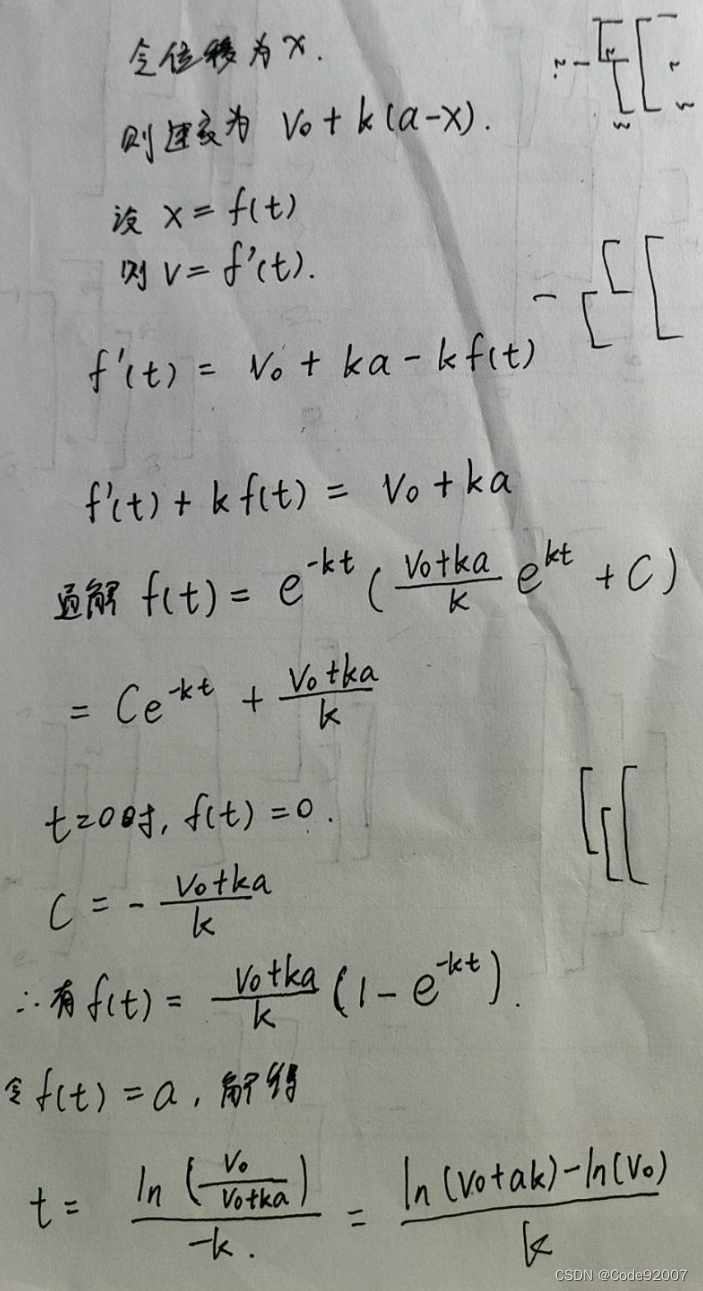 令位移为x.
则速度为 V₀ + k(a-x).
设 x = f(t)
则 v = f'(t).
f'(t) = V₀ + ka - kf(t)
f'(t) + kf(t) = V₀ + ka
通解 f(t) = e^{-kt} ( \frac{V₀+ka}{k} e^{kt} + C )
= Ce^{-kt} + \frac{V₀+ka}{k}
t=0时, f(t) = 0.
C = - \frac{V₀+ka}{k}
∴有 f(t) = \frac{V₀+ka}{k} (1 - e^{-kt}).
令 f(t) = a, 解得
t = \frac{ln(\frac{V₀}{V₀+ka})}{-k.} = \frac{ln(V₀+ak)-ln(V₀)}{k}
CSDN @Code92007